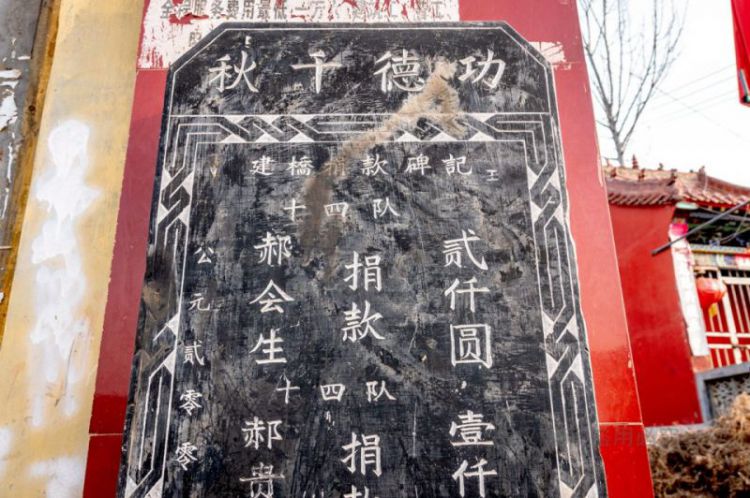 功德千秋
建橋捐款碑記
王
十四队
郝会生
捐款
贰仟圆
十四队
郝贵
捐款
壹仟
公元贰零零